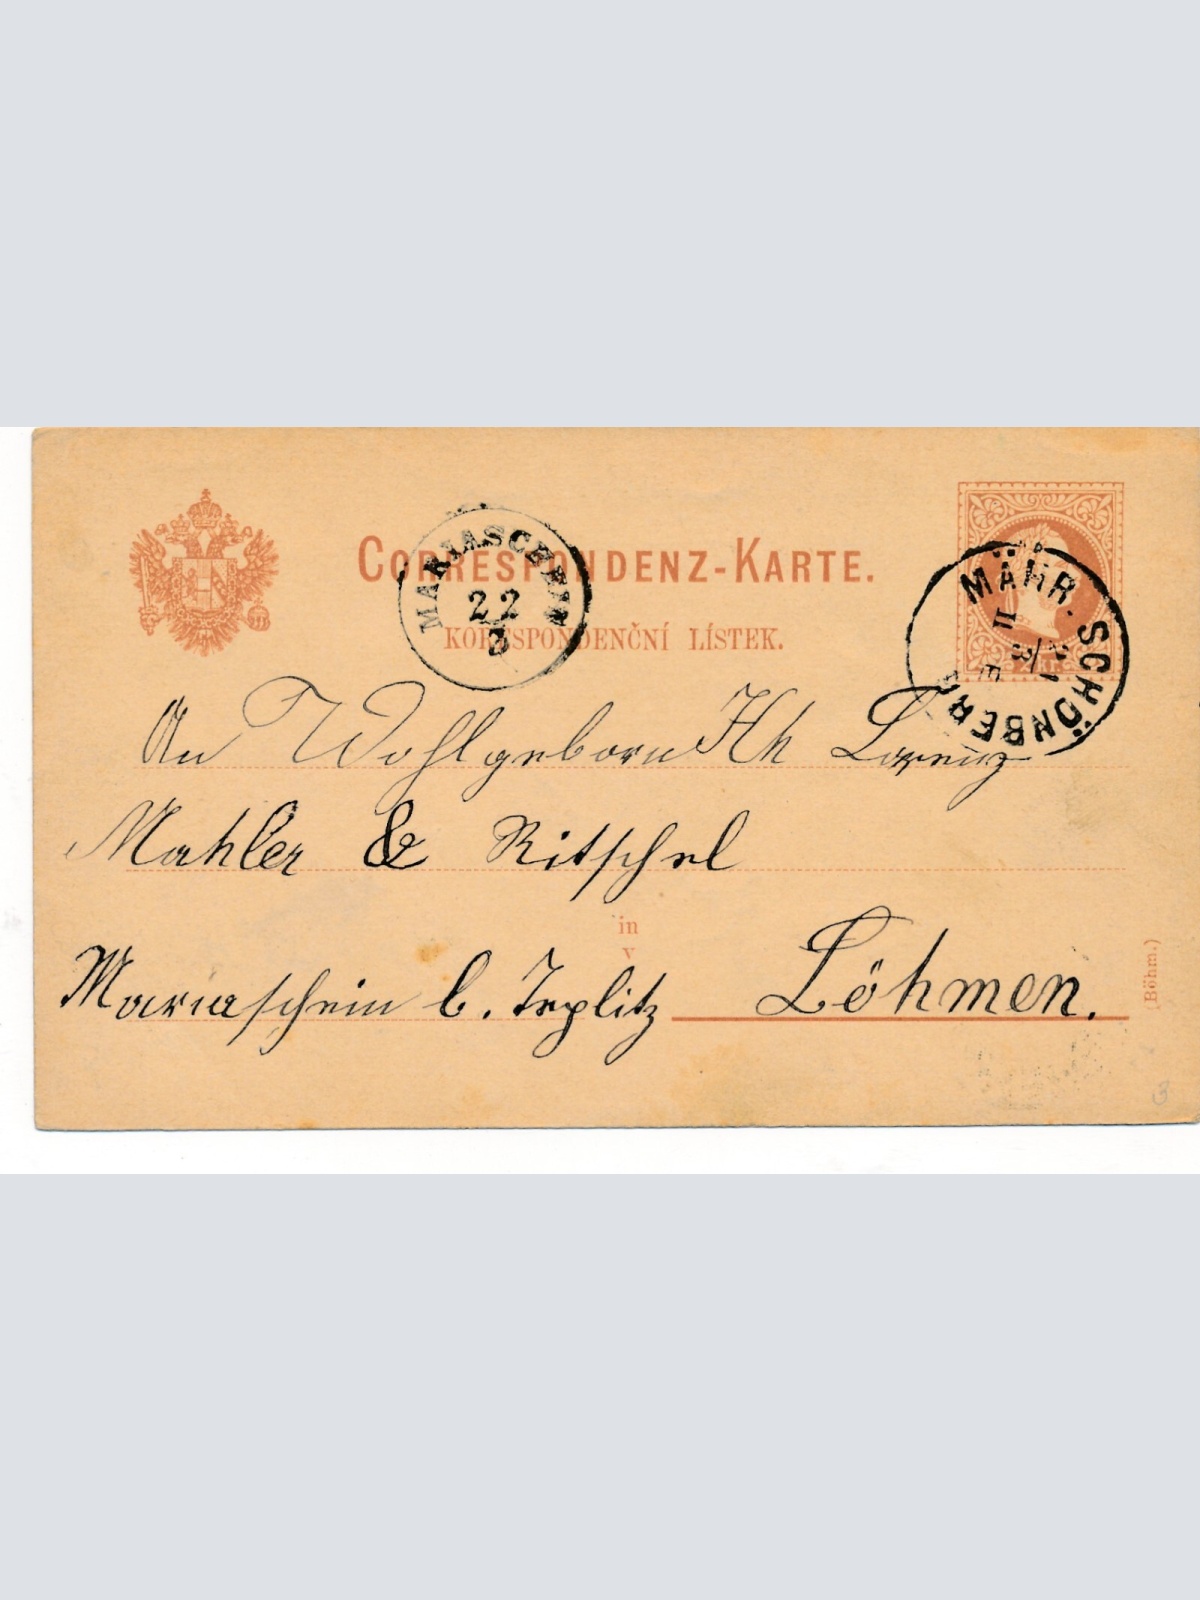 CORRESPONDENZ-KARTE.
KORRESPONDENČNÍ LÍSTEK.
MARIASCHEIN
22
3
MÄHR. SCHÖNBERG
21/3
II F
An Wohlgeborn Hh Lorenz
Mahler & Ritschel
in
v
Mariaschein b. Teplitz Löhmen.
(Böhm.)